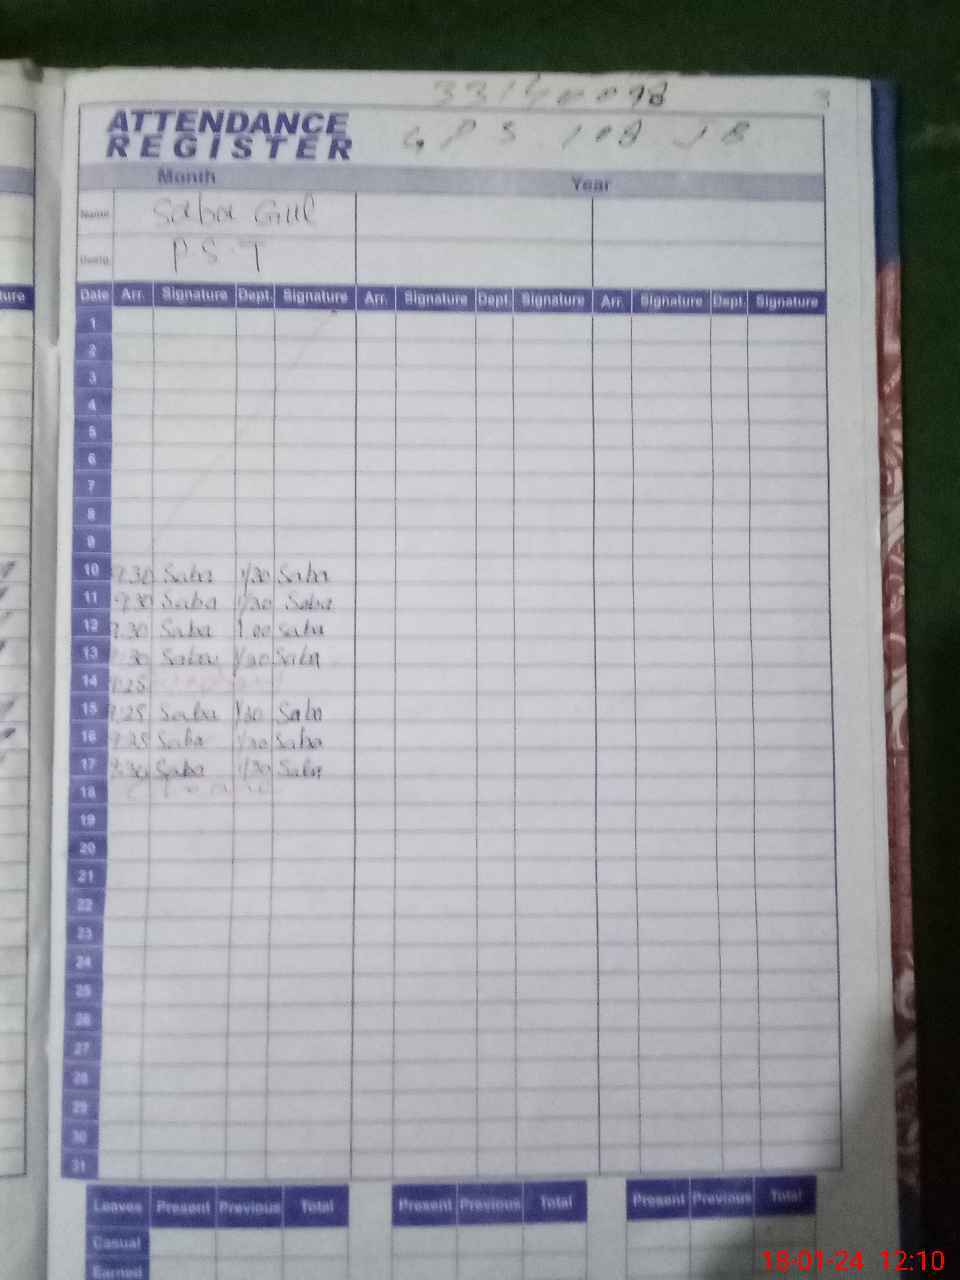 ATTENDANCE
REGISTER
G P S 108 J B
Month Year
Name Saba Gul
Desig. P.S.T
ture
Date Arr. Signature Dept. Signature Arr. Signature Dept. Signature Arr. Signature Dept. Signature
1
2
3
4
5
6
7
8
9
10 9.30 Saba 1/30 Saba
11 9.30 Saba 1/30 Saba
12 9.30 Saba 1 00 Saba
13 Saba 1/30 Saba
14 9:25
15 9:25 Saba 1/30 Saba
16 9:25 Saba 1/30 Saba
17 9:30 Saba 1/30 Saba
18
19
20
21
22
23
24
25
26
27
28
29
30
31
Leaves Present Previous Total Present Previous Total Present Previous Total
Casual
Earned
18-01-24 12:10